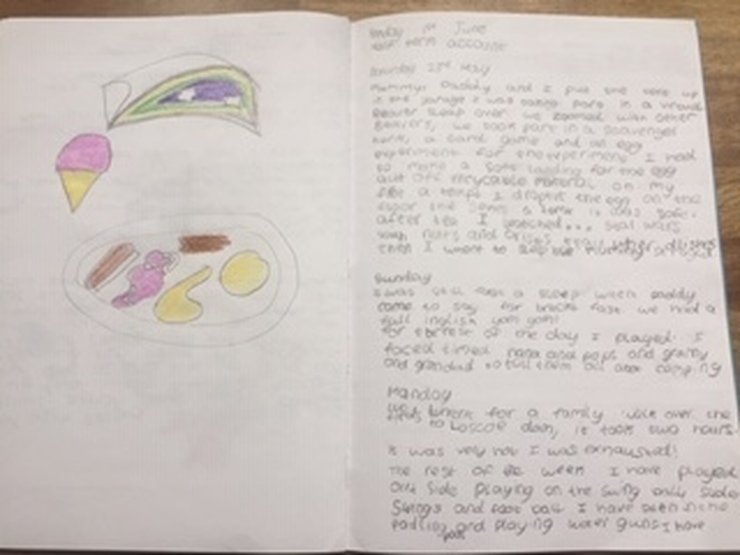 Monday 1st June
half term account
Saturday 23rd May
Mummy, Daddy and I put the tent up
in the garage I was taking part in a virtual
Beaver sleep over. we zoomed with other
Beavers, we took part in a scavenger
hunt, a card game and an egg
experiment. for the experiment I had
to make a soft landing for the egg
out off recyclable material. on my
I dropt the egg on the
floor the it was safe.
after tea I watched... star wars
with nats and
then I went to sleep
Sunday
I was still fast a sleep when daddy
came to say for breck fast we had a
full inglish yom yom!
for the rest of the day I played. I
faced timed nana and pops and gramy
and grandad to tell them all abot camping
Manday
went for a family walk over the
fields to Loscoe dam, it took two hours
it was very hot I was exhausted!
The rest of the week I have played
out side playing on the swing and slide
Swings and foot ball I have been in the
padling pool and playing water guns I have